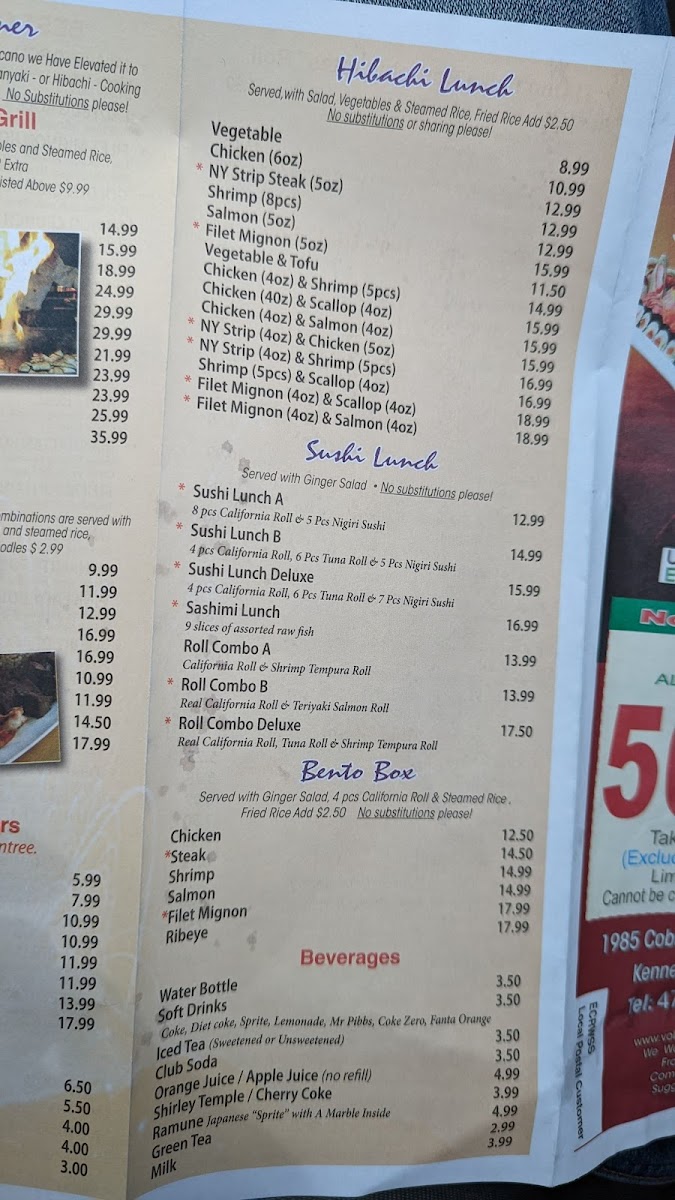 ner
cano we Have Elevated it to
anyaki - or Hibachi - Cooking
No Substitutions please!
Grill
bles and Steamed Rice,
Extra
isted Above $9.99
14.99
15.99
18.99
24.99
29.99
29.99
21.99
23.99
23.99
25.99
35.99
ombinations are served with
and steamed rice,
oodles $ 2.99
9.99
11.99
12.99
16.99
16.99
10.99
11.99
14.50
17.99
rs
ntree.
5.99
7.99
10.99
10.99
11.99
11.99
13.99
17.99
6.50
5.50
4.00
4.00
3.00
Hibachi Lunch
Served,with Salad, Vegetables & Steamed Rice, Fried Rice Add $2.50
No substitutions or sharing please!
Vegetable 8.99
Chicken (6oz) 10.99
* NY Strip Steak (5oz) 12.99
Shrimp (8pcs) 12.99
Salmon (5oz) 12.99
* Filet Mignon (5oz) 15.99
Vegetable & Tofu 11.50
Chicken (4oz) & Shrimp (5pcs) 14.99
Chicken (40z) & Scallop (4oz) 15.99
Chicken (4oz) & Salmon (4oz) 15.99
* NY Strip (4oz) & Chicken (5oz) 15.99
* NY Strip (4oz) & Shrimp (5pcs) 16.99
Shrimp (5pcs) & Scallop (4oz) 16.99
* Filet Mignon (4oz) & Scallop (4oz) 18.99
* Filet Mignon (4oz) & Salmon (4oz) 18.99
Sushi Lunch
Served with Ginger Salad • No substitutions please!
* Sushi Lunch A 12.99
8 pcs California Roll & 5 Pcs Nigiri Sushi
* Sushi Lunch B 14.99
4 pcs California Roll, 6 Pcs Tuna Roll & 5 Pcs Nigiri Sushi
* Sushi Lunch Deluxe 15.99
4 pcs California Roll, 6 Pcs Tuna Roll & 7 Pcs Nigiri Sushi
* Sashimi Lunch 16.99
9 slices of assorted raw fish
Roll Combo A 13.99
California Roll & Shrimp Tempura Roll
* Roll Combo B 13.99
Real California Roll & Teriyaki Salmon Roll
* Roll Combo Deluxe 17.50
Real California Roll, Tuna Roll & Shrimp Tempura Roll
Bento Box
Served with Ginger Salad, 4 pcs California Roll & Steamed Rice .
Fried Rice Add $2.50 No substitutions please!
Chicken 12.50
*Steak 14.50
Shrimp 14.99
Salmon 14.99
*Filet Mignon 17.99
Ribeye 17.99
Beverages
Water Bottle 3.50
Soft Drinks 3.50
Coke, Diet coke, Sprite, Lemonade, Mr Pibbs, Coke Zero, Fanta Orange
Iced Tea (Sweetened or Unsweetened) 3.50
Club Soda 3.50
Orange Juice / Apple Juice (no refill) 4.99
Shirley Temple / Cherry Coke 3.99
Ramune Japanese "Sprite" with A Marble Inside 4.99
Green Tea 2.99
Milk 3.99
AL
Tak
(Exclu
Lim
Cannot be c
1985 Cob
Kenne
Tel: 47
ECRWSS
Local Postal Customer
We W
Fro
Com
Sugg